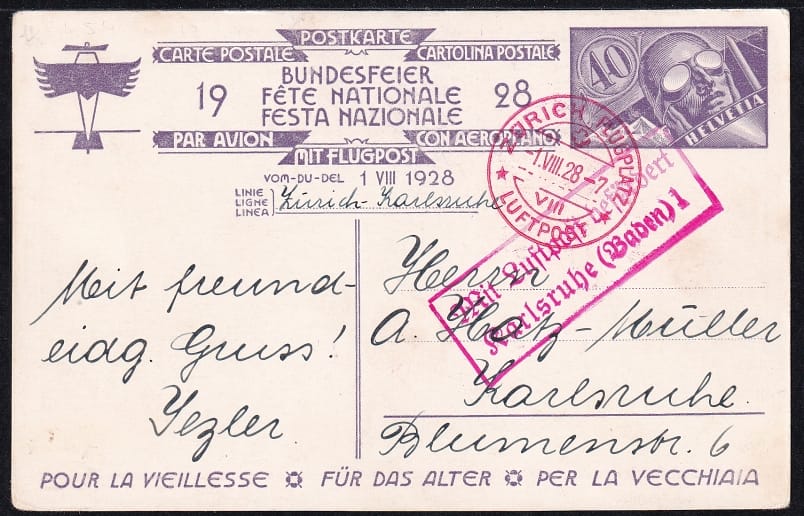 POSTKARTE
CARTE POSTALE CARTOLINA POSTALE
BUNDESFEIER
19 FÊTE NATIONALE 28
FESTA NAZIONALE
PAR AVION CON AEROPLANO
MIT FLUGPOST
VOM-DU-DEL 1 VIII 1928
LINIE
LIGNE
LINEA
Zürich-Karlsruhe
40
HELVETIA
ZÜRICH FLUGPLATZ
-1.VIII.28-7
VIII
LUFTPOST
Mit Luftpost befördert
Karlsruhe (Baden) 1
Mit freund-
eidg. Gruss!
Yezler.
Herrn
A. Hotz-Müller
Karlsruhe.
Blumenstr. 6
POUR LA VIEILLESSE FÜR DAS ALTER PER LA VECCHIAIA